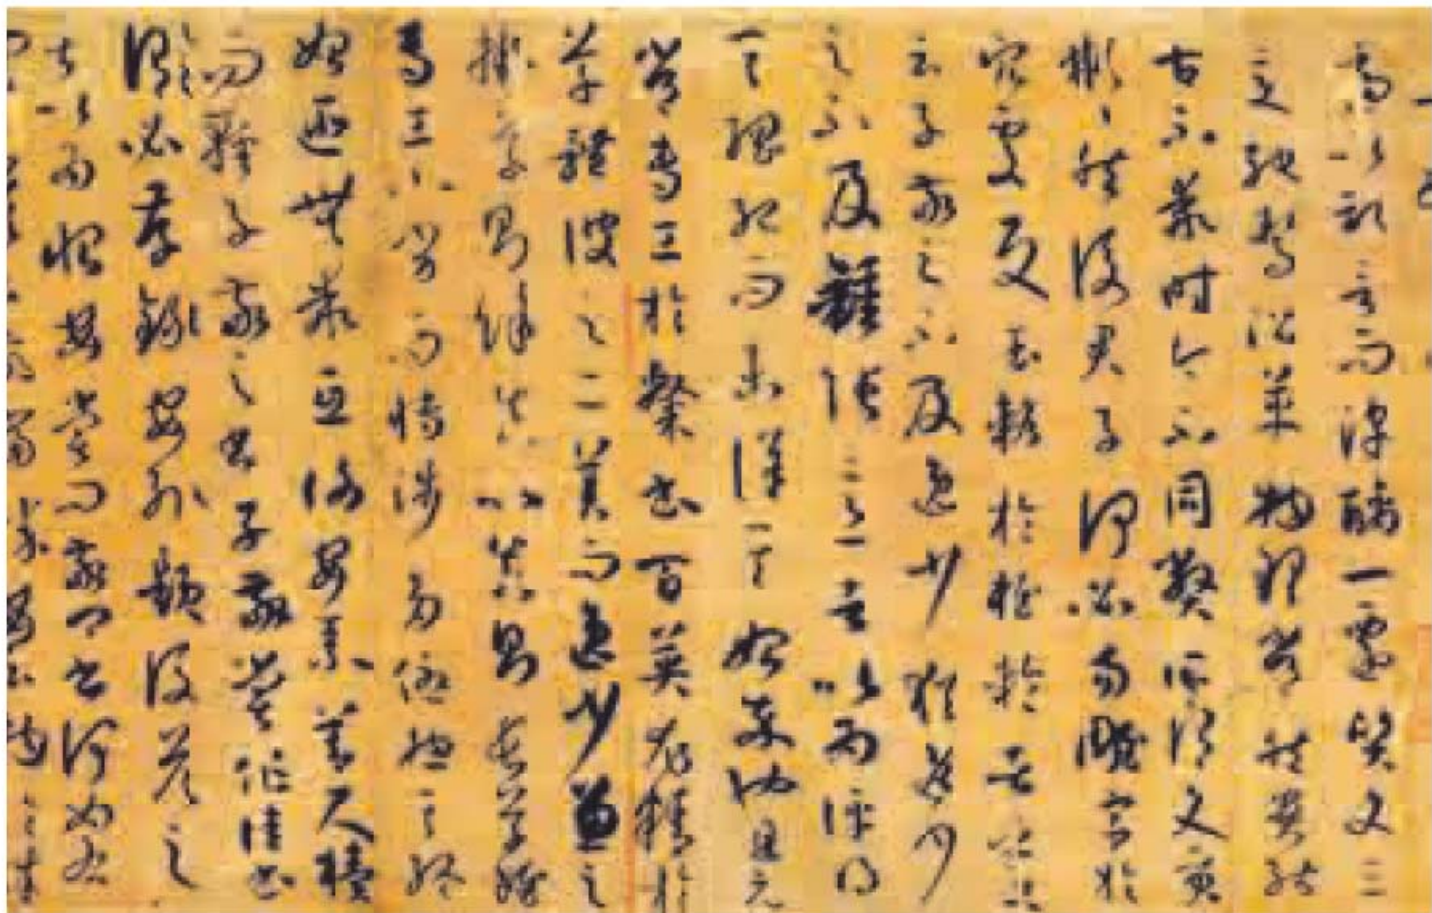 適以記言而淳醨一遷質文三
變馳騖沿革物理常然貴能
古不乖時今不同弊所謂文質
彬彬然後君子何必易雕宮於
穴處反玉輅於椎輪者乎
云子敬之不及逸少猶逸少
之不及鍾張意者以為評得
其綱紀而未詳其始卒也且元
常專工於隸書百英尤精於
草體彼之二美而逸少兼之
擬草則餘真比真則長草雖
專工小劣而博涉多優揔其終
始匪無乖互謝安素善尺牘
而輕子敬之書子敬嘗作佳書
與之謂必存錄安輒題後答之
甚以為恨安嘗問敬卿書何如右